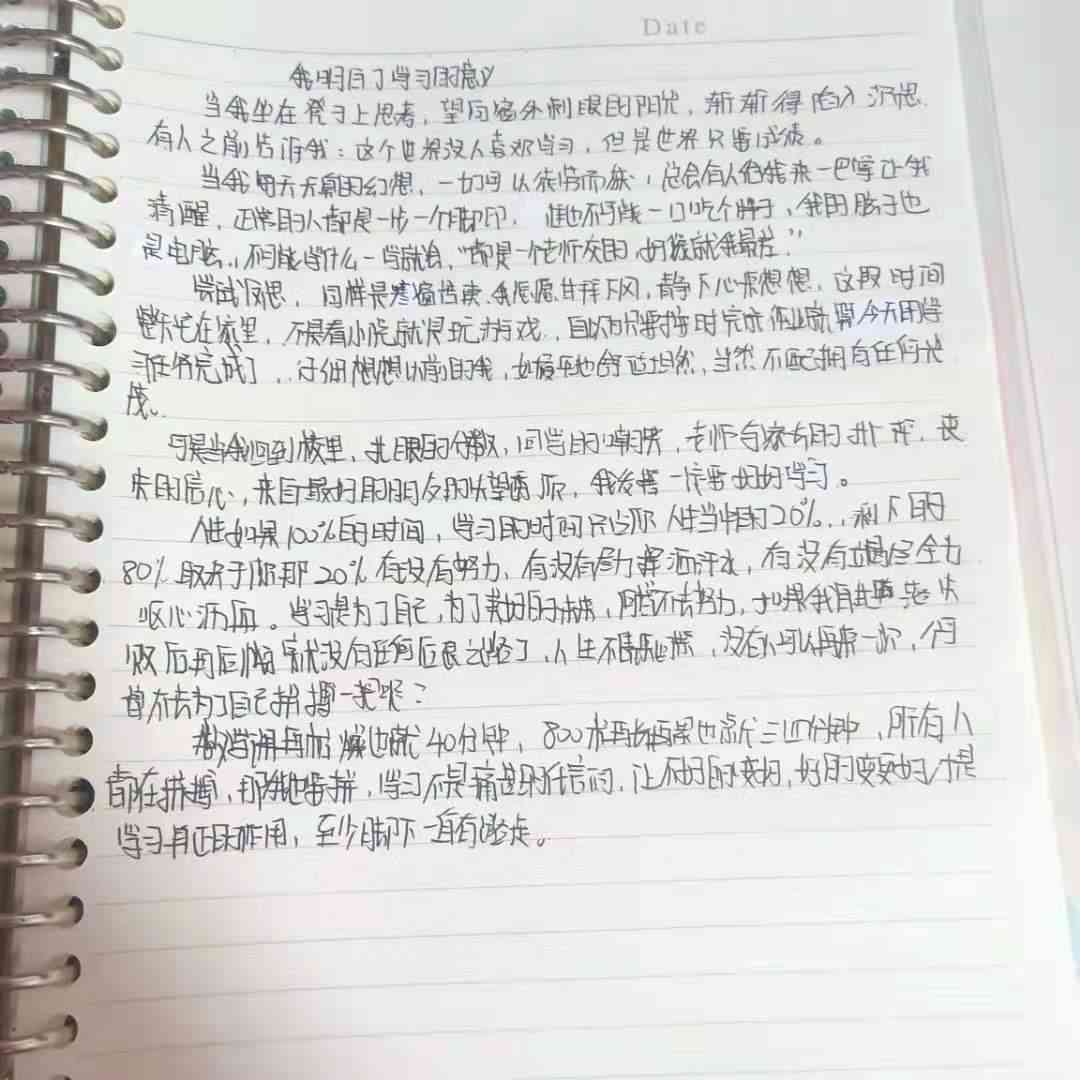 Date
我明白了学习的意义
当我坐在凳子上思考，望向窗外刺眼的阳光，渐渐得陷入沉思
有人之前告诉我：这个世界没人喜欢学习，但是世界只要成绩。
当我每天天真的幻想，一如可以，总会有人给我来一巴掌让我
清醒，正常的人都是一步一个脚印，谁也不可能一口吃个胖子，我的脑子也
是电脑，不可能学什么一学就会，“都是一个老师教的 为啥就我最差”
尝试沉思，同样是寒窗苦读，我低愿甘拜下风，静下心来想想，这段时间
整天宅在家里，不是看小说就是玩游戏，自以为只要按时完成作业就算今天的学
习任务完成了，仔细想想以前的我，如履平地舒适坦然，当然不配拥有任何光
茂。
可是当我回到校里，扎眼的分数，同学的嘲笑，老师与家长的批评，丧
失的信心，来自最好的朋友的失望，我发誓一定要好好学习。
人生如果100%的时间，学习的时间只占你人生当中的20%，剩下的
80%取决于你那20%有没有努力，有没有尽力挥洒汗水，有没有竭尽全力
呕心沥血。学习是为了自己，为了美好的未来，何尝不去努力，如果我自己失
败后再后悔就没有任何后退之路了，人生不是，没有人可以再来一次，何
曾不去为了自己拼搏一把呢？
一堂课再难熬也就40分钟，800米再长也就三四分钟，所有人
都在拼搏，那我也要拼，学习不是痛苦的，让不好的变好，好的变更好才是
学习真正的作用，至少脚下一直有路走。